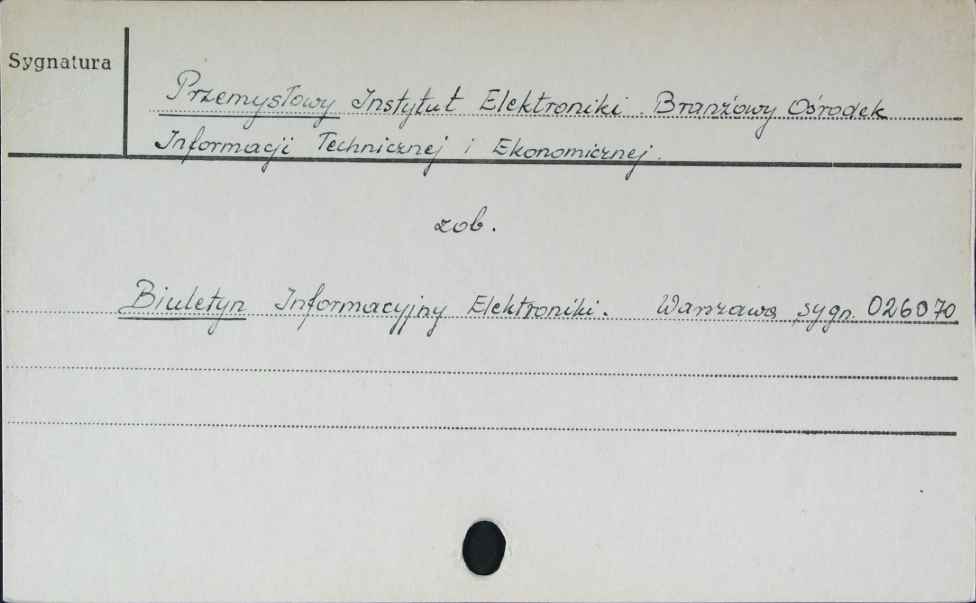 Sygnatura
Przemysłowy Instytut Elektroniki. Branżowy Ośrodek
Informacji Technicznej i Ekonomicznej.
zob.
Biuletyn Informacyjny Elektroniki. Warszawa sygn. 026070